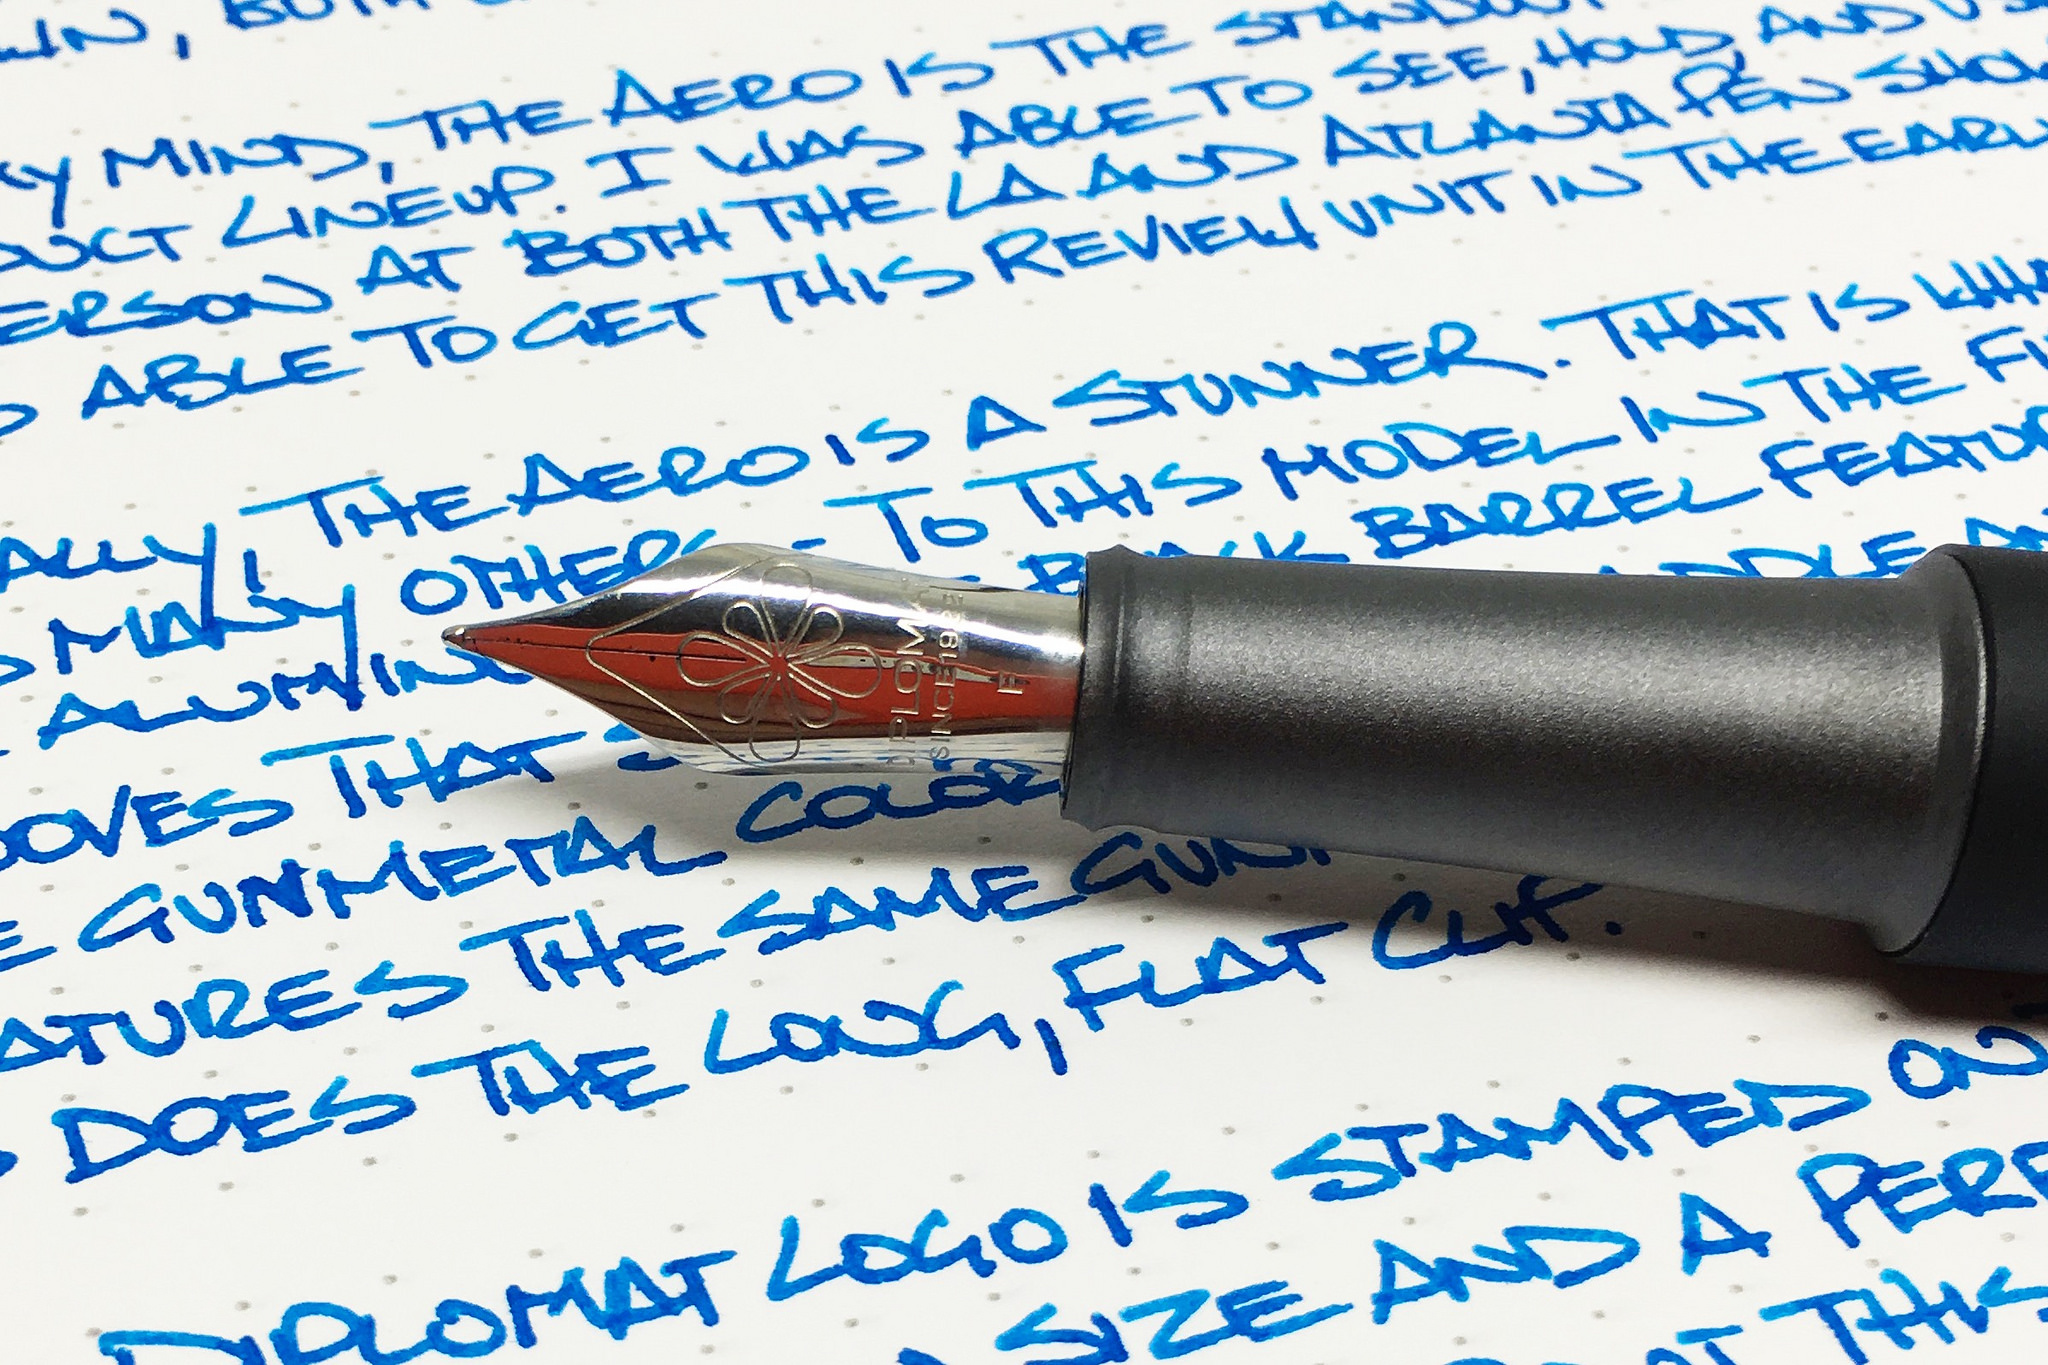 , BOTH
MY MIND, THE AERO IS THE STANDOUT
DUCT LINEUP. I WAS ABLE TO SEE, HOLD, AND
PERSON AT BOTH THE LA AND ATLANTA PEN SHOW
ABLE TO GET THIS REVIEW UNIT IN THE EARL
ALLY, THE AERO IS A STUNNER. THAT IS WHA
MANY OTHERS TO THIS MODEL IN THE FI
ALUMIN BLACK BARREL FEATUR
OOVES THAT
E GUNMETAL COLOR
ATURES THE SAME GUNM
DOES THE LONG, FLAT CLIP.
DIPLOMAT LOGO IS STAMPED ON
SIZE AND A PERF
THIS
DIPLOMAT
SINCE 1922
F